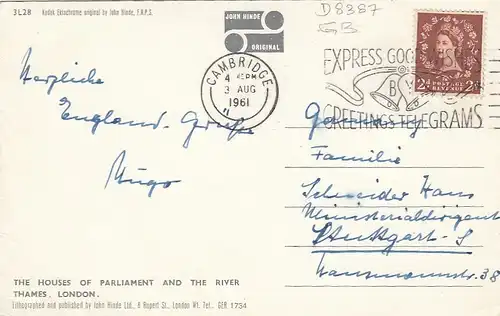 3L28 Kodak Ektachrome original by John Hinde, F.R.P.S.
JOHN HINDE
ORIGINAL
D8387
GB
CAMBRIDGE
4 PM
3 AUG
1961
EXPRESS GOOD
GREETINGS TELEGRAMS
2D POSTAGE REVENUE 2D
Herzliche
England-Grüße
Hugo
Germany
Familie
Schneider Hans
Ministerialdirigent
Stuttgart-S
38
THE HOUSES OF PARLIAMENT AND THE RIVER
THAMES, LONDON.
Lithographed and published by John Hinde Ltd., 8 Rupert St., London W1. Tel., GER 1734